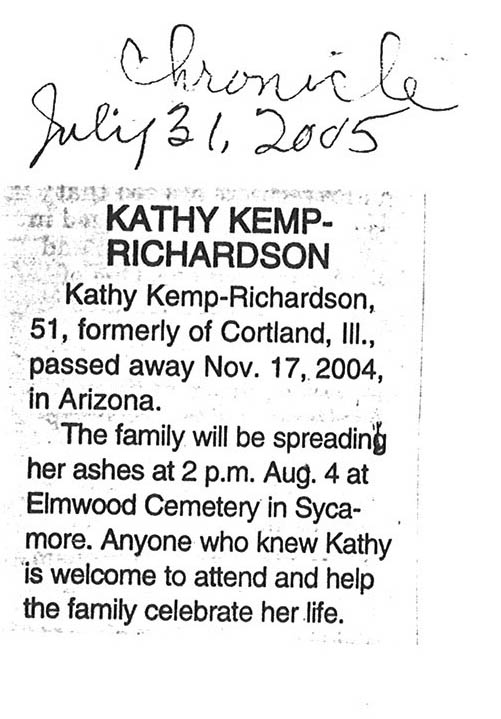 Chronicle
July 31, 2005
KATHY KEMP-
RICHARDSON
Kathy Kemp-Richardson,
51, formerly of Cortland, Ill.,
passed away Nov. 17, 2004,
in Arizona.
The family will be spreading
her ashes at 2 p.m. Aug. 4 at
Elmwood Cemetery in Syca-
more. Anyone who knew Kathy
is welcome to attend and help
the family celebrate her life.